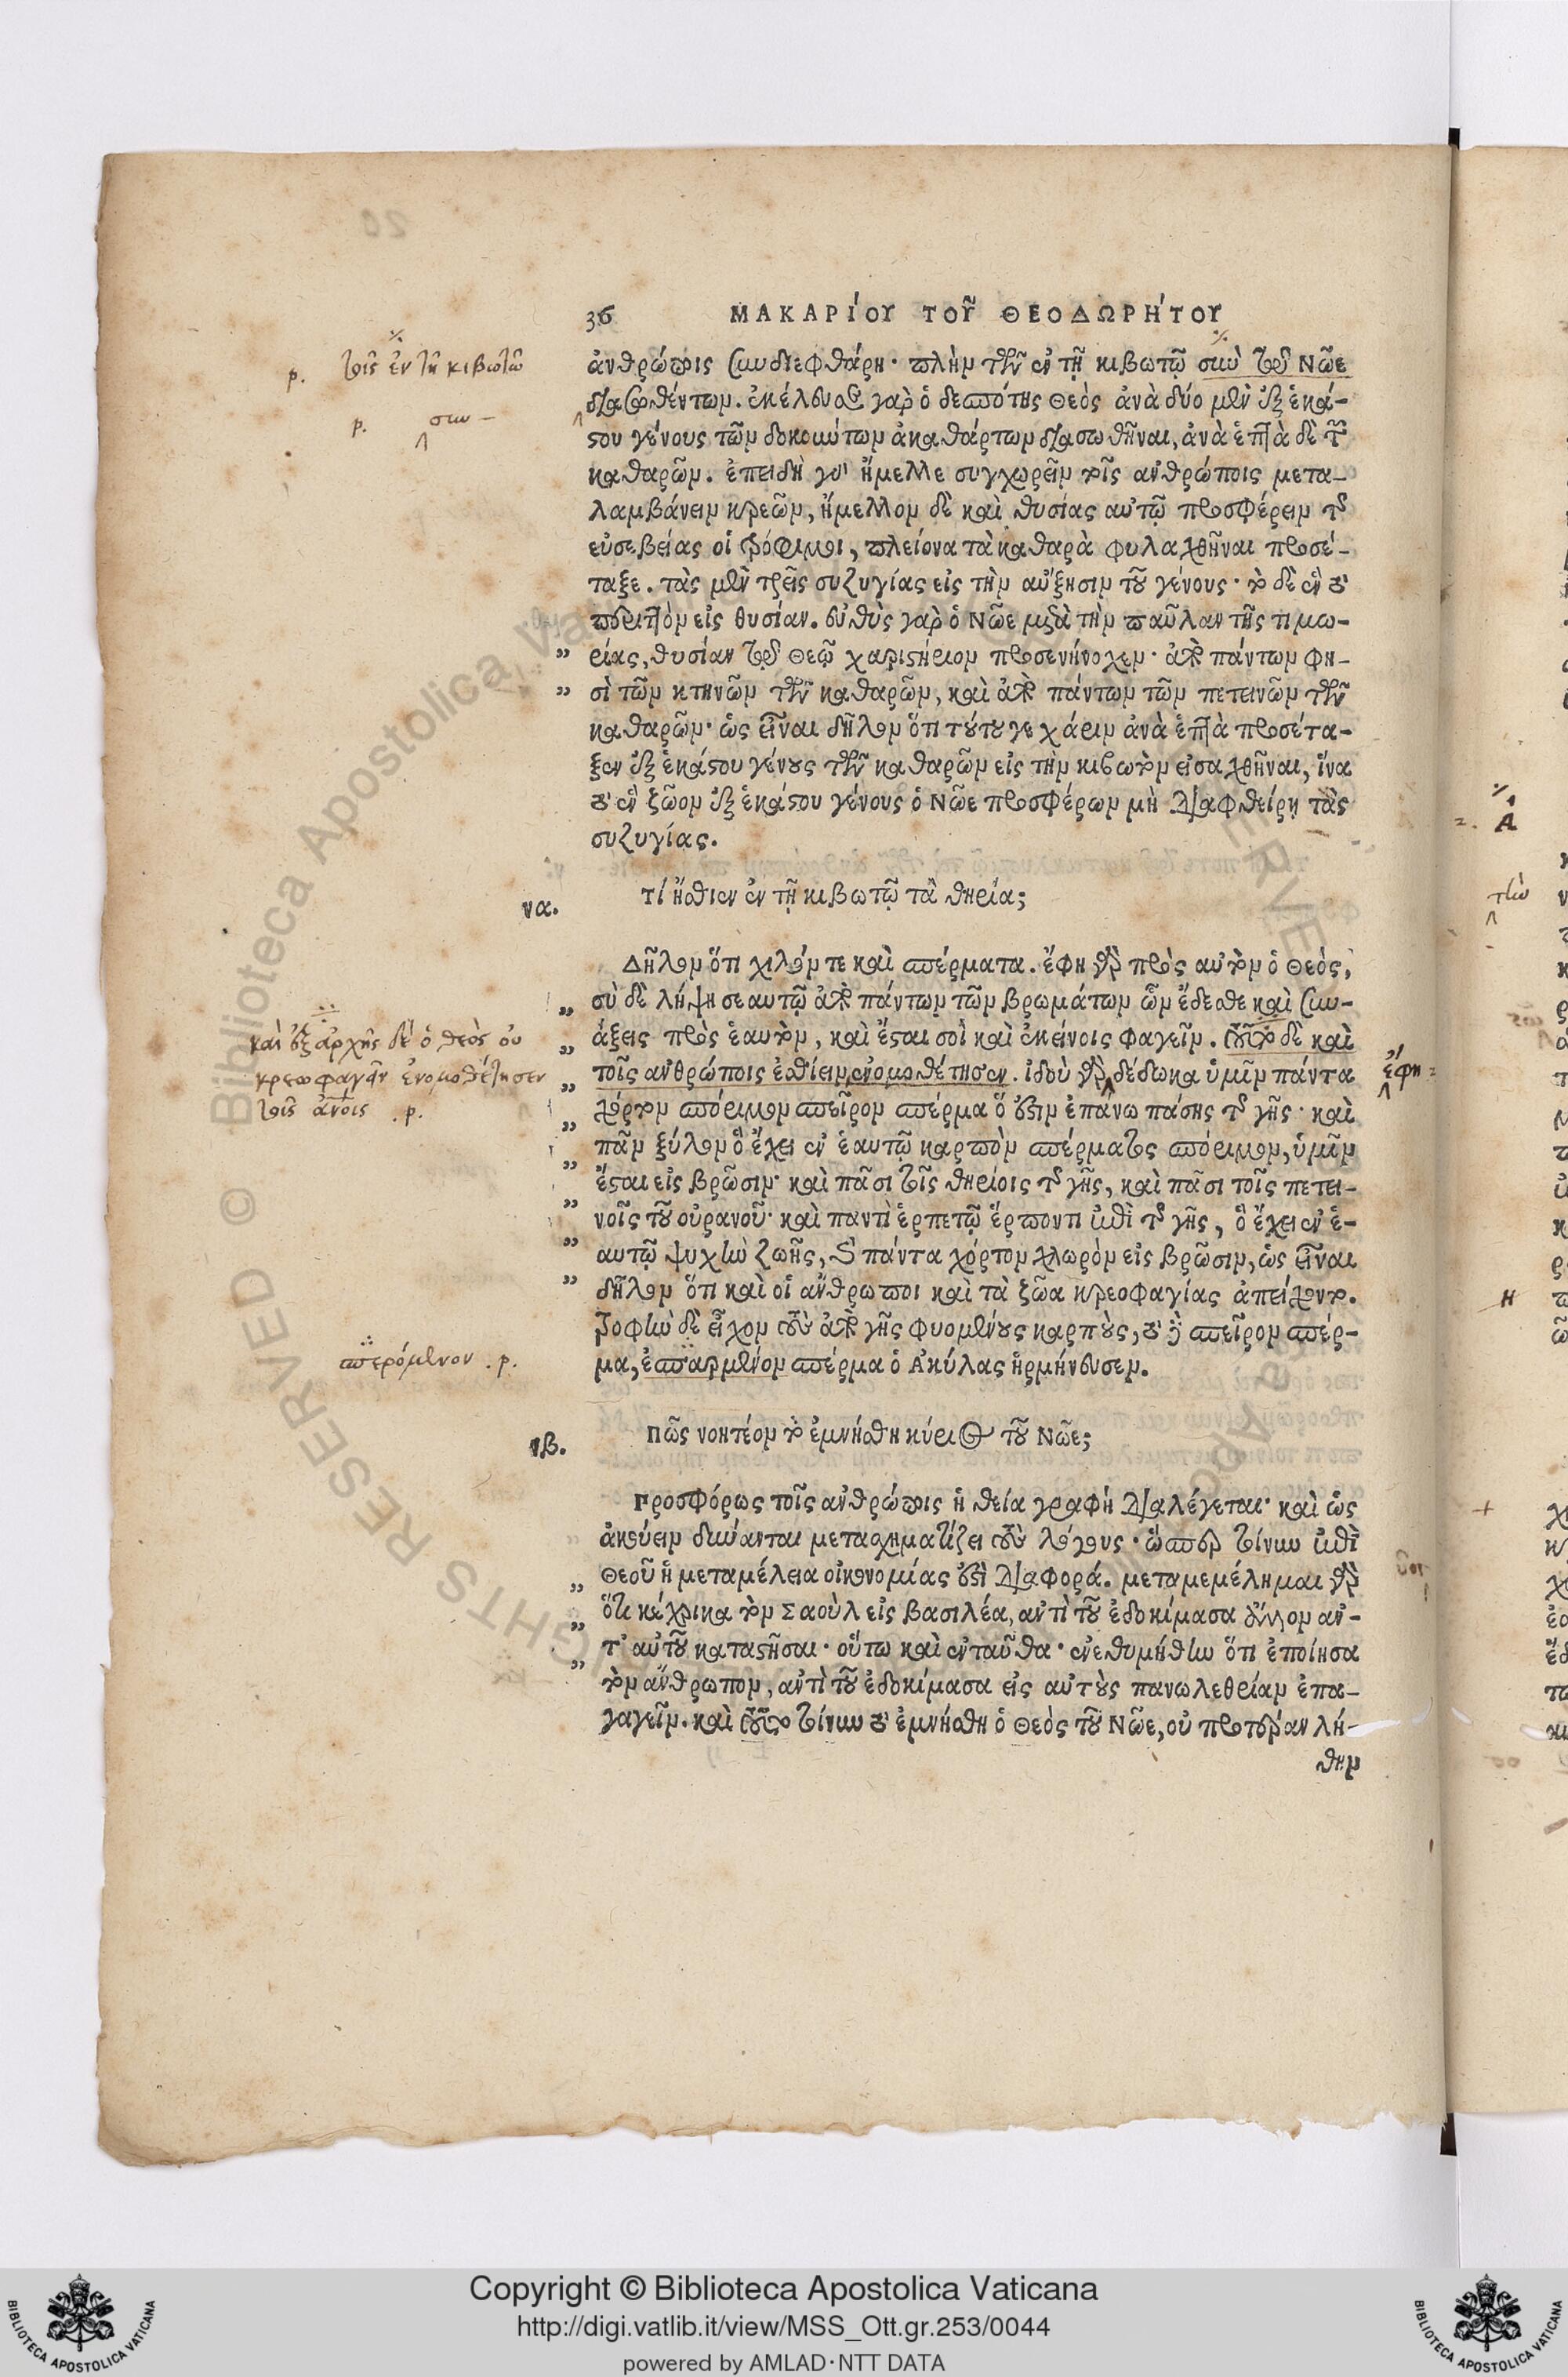 36 ΜΑΚΑΡΙΟΥ ΤΟΥ ΘΕΟΔΩΡΗΤΟΥ
ἀνθρώποις συνδιεφθάρη· πλὴν τῶν ἐν τῇ κιβωτῷ σὺν τῷ Νῶε
διασωθέντων. ἐκέλευσε γὰρ ὁ δεσπότης Θεὸς ἀνὰ δύο μὲν ἐξ ἑκά-
στου γένους τῶν δοκούντων ἀκαθάρτων διασωθῆναι, ἀνὰ ἑπτὰ δὲ τῶν
καθαρῶν. ἐπειδὴ γὰρ ἤμελλε συγχωρεῖν τοῖς ἀνθρώποις μετα-
λαμβάνειν κρεῶν, ἤμελλον δὲ καὶ θυσίας αὐτῷ προσφέρειν τῆς
εὐσεβείας οἱ τρόφιμοι, πλείονα τὰ καθαρὰ φυλαχθῆναι προσέ-
ταξε. τὰς μὲν τρεῖς συζυγίας εἰς τὴν αὔξησιν τοῦ γένους· τὸ δὲ ἓν τὸ
περιττὸν εἰς θυσίαν. εὐθὺς γὰρ ὁ Νῶε μετὰ τὴν παῦλαν τῆς τιμω-
„ ρίας, θυσίαν τῷ Θεῷ χαριστήριον προσενήνοχεν· ἀπὸ πάντων φη-
„ σὶ τῶν κτηνῶν τῶν καθαρῶν, καὶ ἀπὸ πάντων τῶν πετεινῶν τῶν
καθαρῶν· ὡς εἶναι δῆλον ὅτι τούτου γε χάριν ἀνὰ ἑπτὰ προσέτα-
ξεν ἐξ ἑκάστου γένους τῶν καθαρῶν εἰς τὴν κιβωτὸν εἰσαχθῆναι, ἵνα
τὸ ἓν ζῶον ἐξ ἑκάστου γένους ὁ Νῶε προσφέρων μὴ διαφθείρῃ τὰς
συζυγίας.
να. Τί ἤσθιεν ἐν τῇ κιβωτῷ τὰ θηρία;
Δῆλον ὅτι χιλόν τε καὶ σπέρματα. ἔφη γὰρ πρὸς αὐτὸν ὁ Θεὸς,
„ σὺ δὲ λήψῃ σεαυτῷ ἀπὸ πάντων τῶν βρωμάτων ὧν ἔδεσθε καὶ συν-
„ άξεις πρὸς ἑαυτὸν, καὶ ἔσται σοὶ καὶ ἐκείνοις φαγεῖν. τοῦτο δὲ καὶ
„ τοῖς ἀνθρώποις ἐσθίειν ἐνομοθέτησεν. ἰδοὺ γὰρ δέδωκα ὑμῖν πάντα
„ χόρτον σπόριμον σπεῖρον σπέρμα ὅ ἐστιν ἐπάνω πάσης τῆς γῆς· καὶ
„ πᾶν ξύλον ὃ ἔχει ἐν ἑαυτῷ καρπὸν σπέρματος σπόριμον, ὑμῖν
„ ἔσται εἰς βρῶσιν· καὶ πᾶσι τοῖς θηρίοις τῆς γῆς, καὶ πᾶσι τοῖς πετει-
„ νοῖς τοῦ οὐρανοῦ· καὶ παντὶ ἑρπετῷ ἕρποντι ἐπὶ τῆς γῆς, ὃ ἔχει ἐν ἑ-
„ αυτῷ ψυχὴν ζωῆς, καὶ πάντα χόρτον χλωρὸν εἰς βρῶσιν, ὡς εἶναι
δῆλον ὅτι καὶ οἱ ἄνθρωποι καὶ τὰ ζῶα κρεοφαγίας ἀπείχοντο.
τροφὴν δὲ εἶχον τοὺς ἀπὸ γῆς φυομένους καρποὺς, τὸ δὲ σπεῖρον σπέρ-
μα, ἐσπαρμένον σπέρμα ὁ Ἀκύλας ἡρμήνευσεν.
νβ. Πῶς νοητέον τὸ ἐμνήσθη κύριος τοῦ Νῶε;
Προσφόρως τοῖς ἀνθρώποις ἡ θεία γραφὴ διαλέγεται· καὶ ὡς
ἀκούειν δύνανται μετασχηματίζει τοὺς λόγους· ὥσπερ τοίνυν ἐπὶ
„ Θεοῦ ἡ μεταμέλεια οἰκονομίας ἐστὶ διαφορά. μεταμεμέλημαι γὰρ
„ ὅτι κέχρικα τὸν Σαοὺλ εἰς βασιλέα, ἀντὶ τοῦ ἐδοκίμασα ἄλλον ἀν-
„ τ' αὐτοῦ καταστῆσαι· οὕτω καὶ ἐνταῦθα· ἐνεθυμήθην ὅτι ἐποίησα
τὸν ἄνθρωπον, ἀντὶ τοῦ ἐδοκίμασα εἰς αὐτοὺς πανωλεθρίαν ἐπα-
γαγεῖν. καὶ τοῦτο τοίνυν τὸ ἐμνήσθη ὁ Θεὸς τοῦ Νῶε, οὐ προτέραν λή-
θην
τοῖς ἐν τῇ κιβωτῷ
p.
p. συν
καὶ ἐξ ἀρχῆς δὲ ὁ θεὸς οὐ
κρεωφαγεῖν ἐνομοθέτησεν
τοῖς ἀνοις . p.
ἔφη
σπερόμενον . p.
τὴν
Copyright © Biblioteca Apostolica Vaticana
http://digi.vatlib.it/view/MSS_Ott.gr.253/0044
powered by AMLAD·NTT DATA
BIBLIOTECA APOSTOLICA VATICANA
BIBLIOTECA APOSTOLICA VATICANA